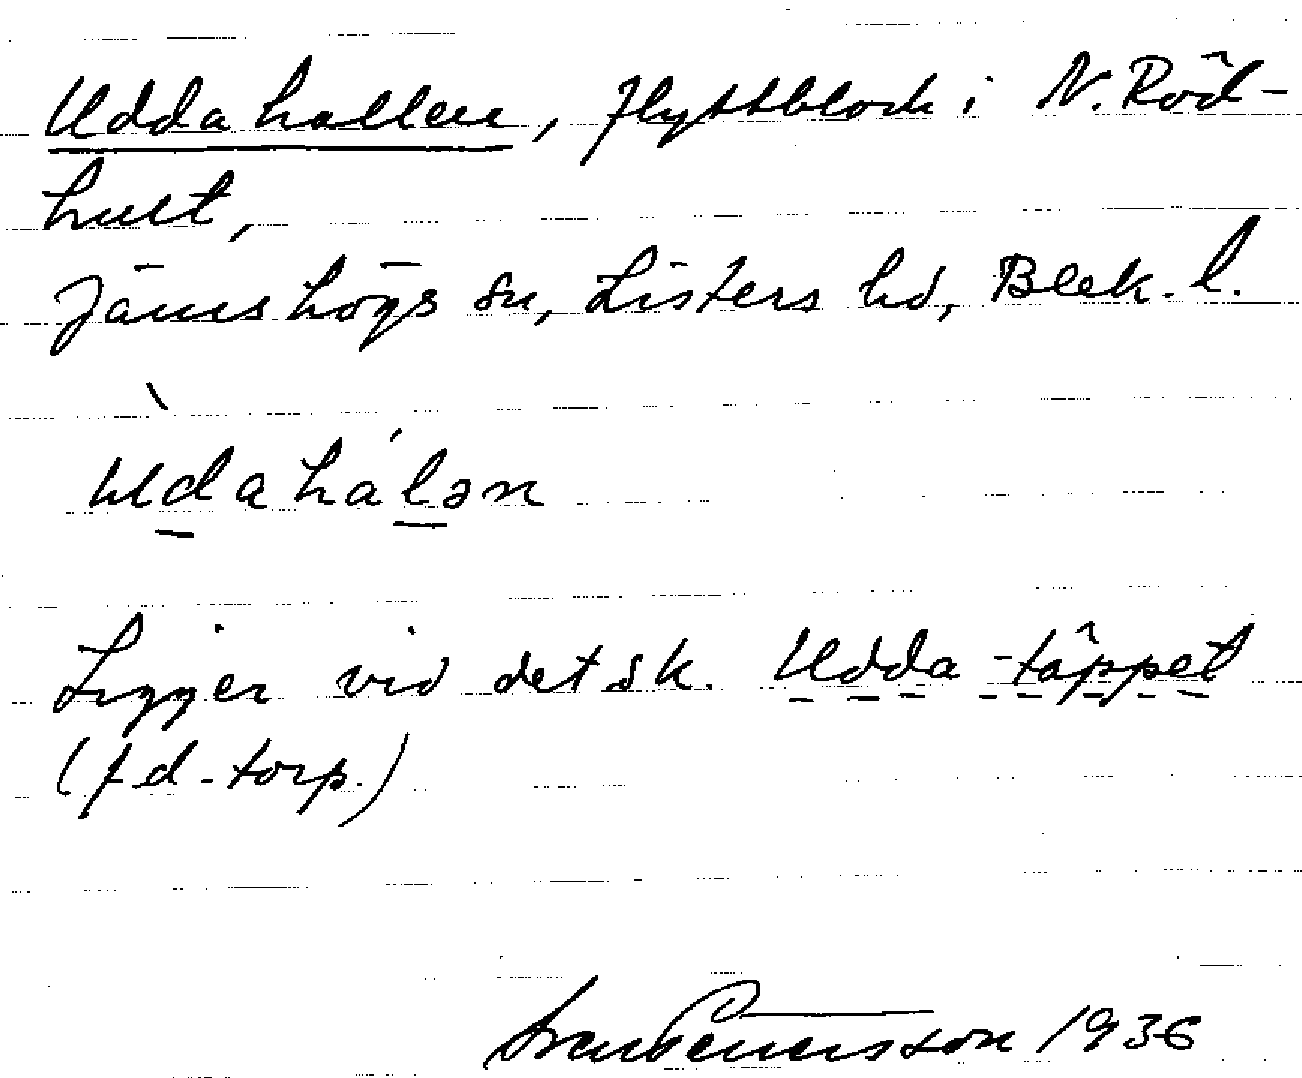 Uddahallen, flyttblock i N. Röd-
hult,
Jämshögs sn, Listers hd, Blek. l.
ùdahálən
Ligger vid det s k. Udda-täppet
(f d - torp.)
Sven Pettersson 1936